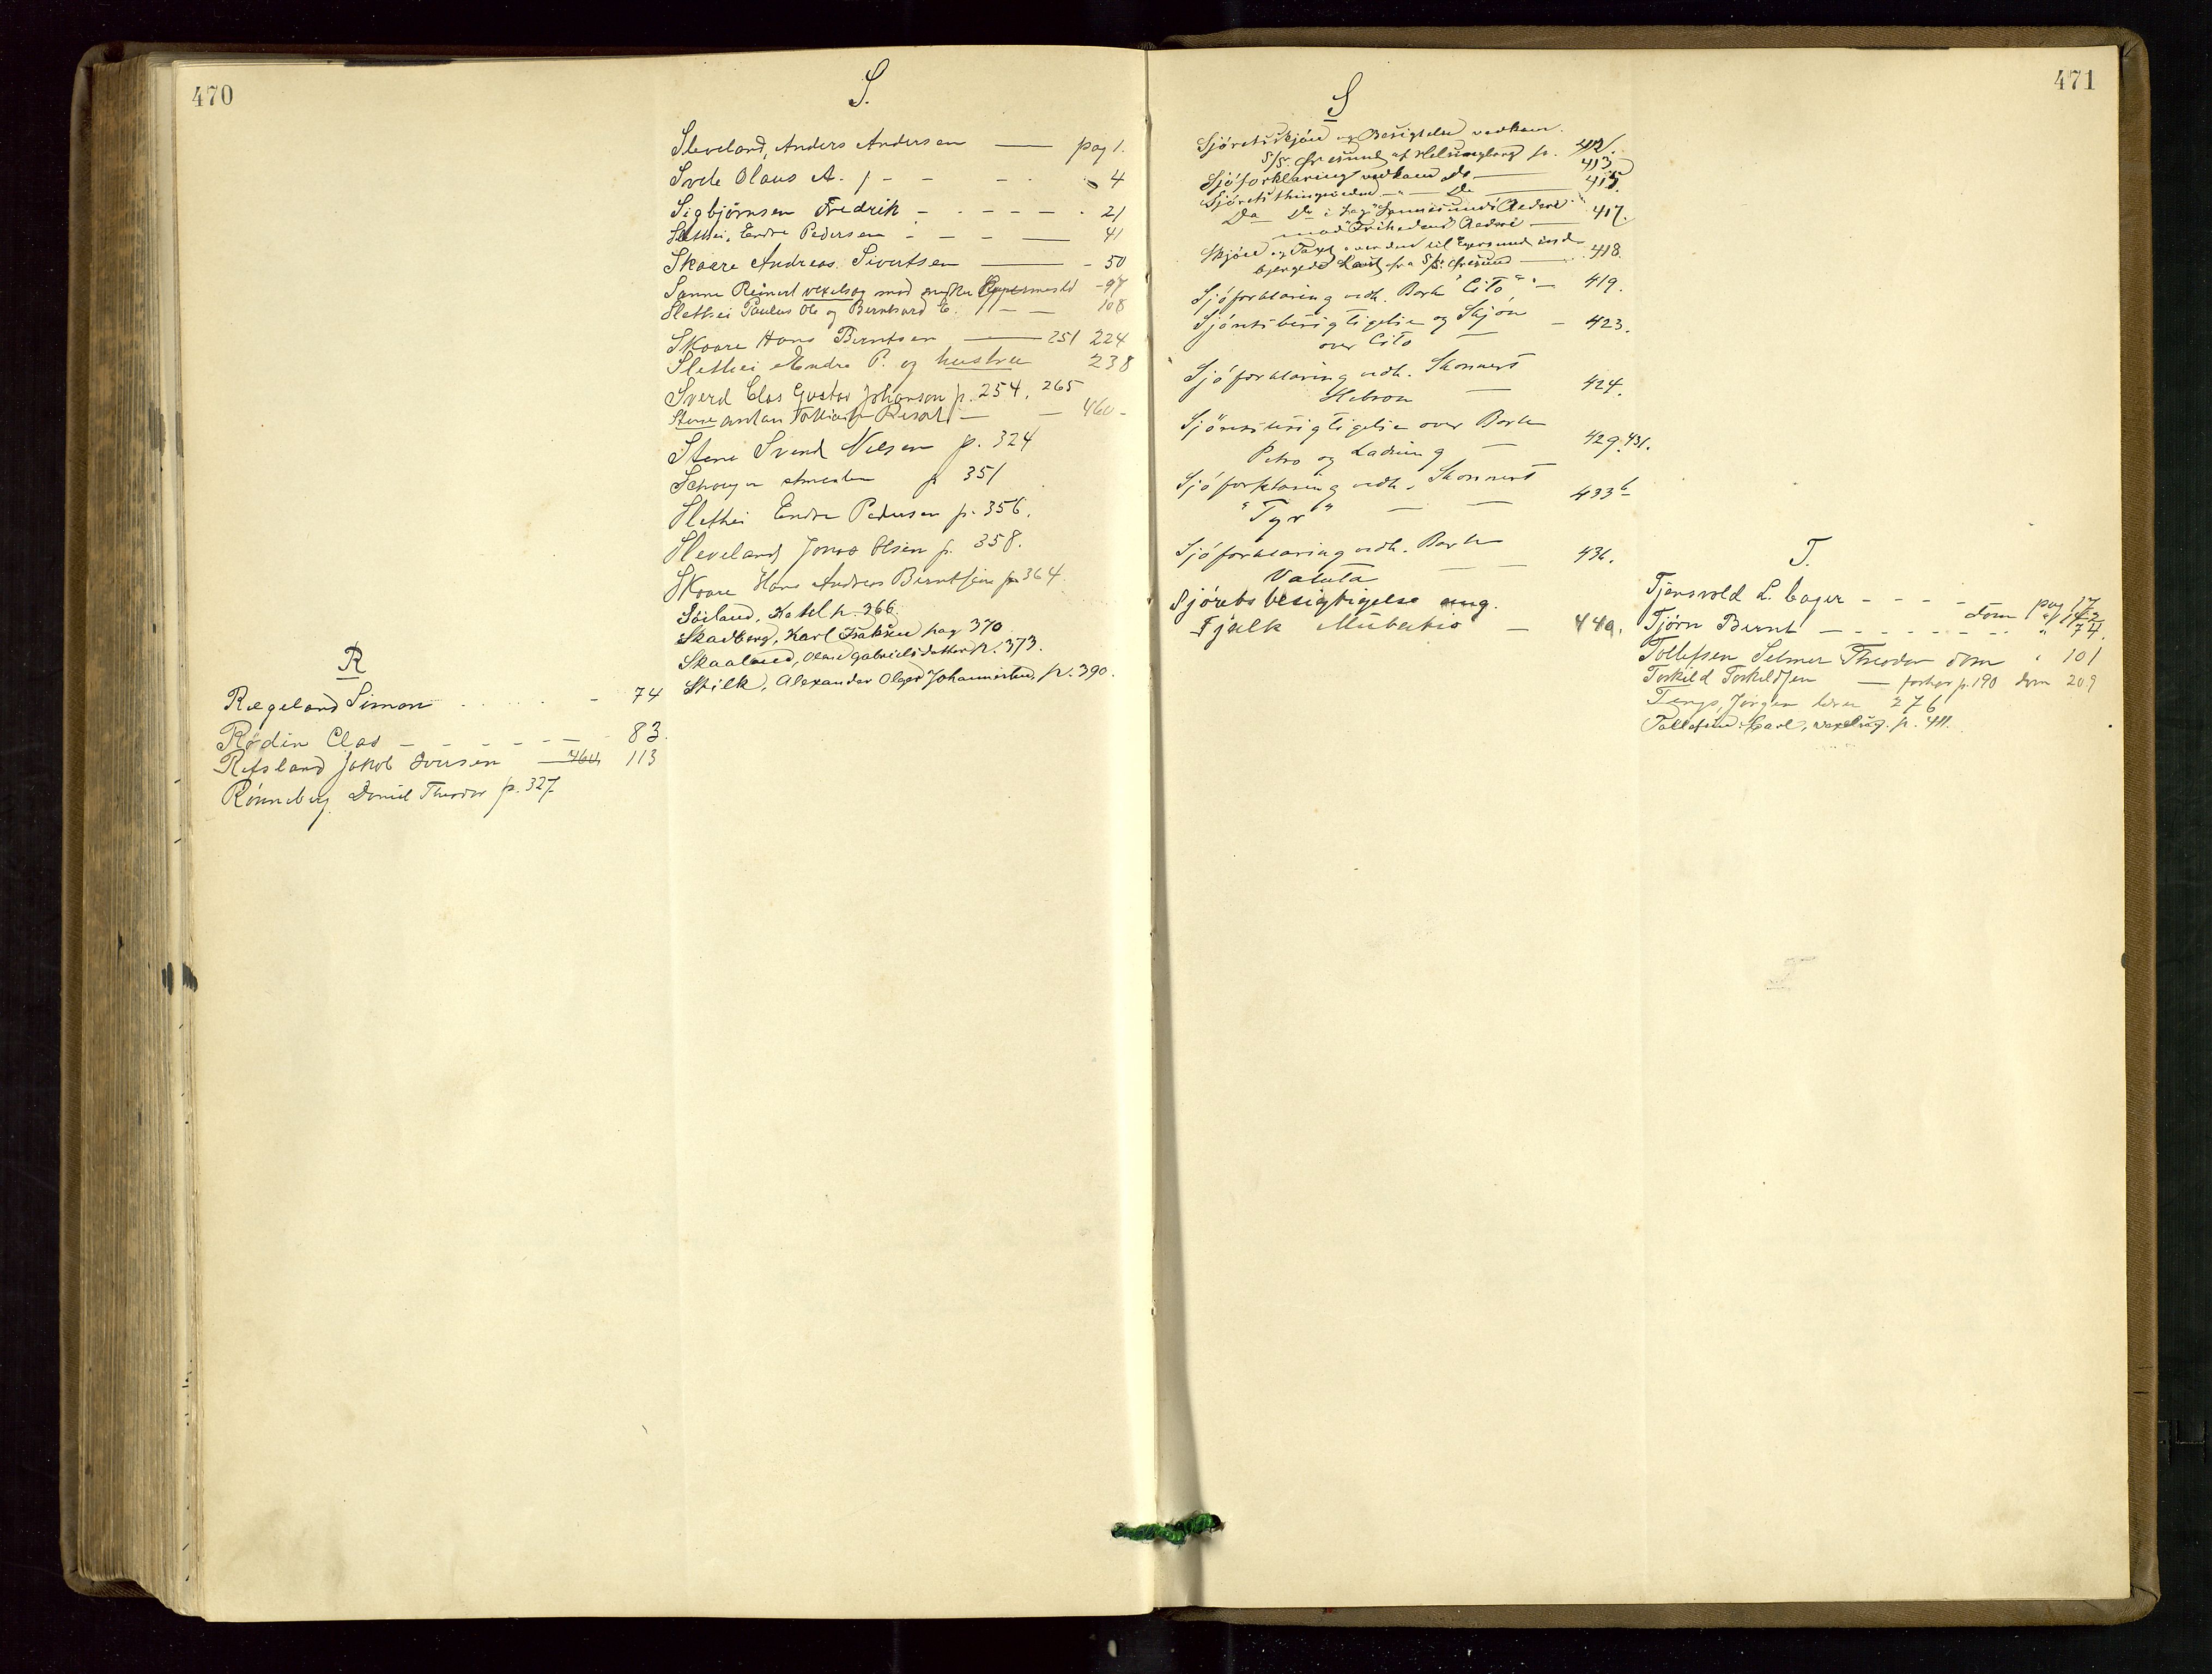 470
R
Rægeland Simon 74
Rødin Clas 83
Refsland Jakob Iversen 460 113
Rønneberg Daniel Theodor p. 327
S.
Sleveland, Anders Andersen pag 1.
Svele Olaus A. 4
Sigbjørnsen Fredrik 21
Slethei, Endre Pedersen 41
Skaare Andreas Sivertsen 50
Sanne Reinert vexelsag mod 97
Slethei Paulus Ole og Berntsard E. 108
Skaare Hans Berntsen 251 224
Slethei Endre P. og hustru 238
Sverd Clas Gustav Johanson p. 254, 265
Stene 460
Stene Svend Nilsen p. 324
351
Slethei Endre Pedersen p. 356.
Sleveland Jonas Olsen p. 358.
Skaare Hans Andreas Berntsen p 364
Söiland, Ketel p. 366.
Skadberg, Karl Isaksen pag 370
Skaaland, Olene Gabrielsdatter p. 373.
Stilk, Alexander Olaf Johannesen, p. 390.
471
S
Sjöretsskjön og Besigtelse vedkom.
S/S. Øresund af Helsingborg p. 412.
Sjöforklaring vedkom Do 413
Sjöretsthingvidne — " — Do 415
Do Do i Sag Rederi 417.
mod "Frihedens" Rederi
Skjön og Taxt over den til Egersund ind-
bjergede Last fra S/S. Øresund 418.
Sjöforklaring vedk. Bark "Cito" 419.
Sjöretsbesigtigelse og Skjön
over Cito 423.
Sjöforklaring vedk. Skonnert
Hebron 424.
Sjöretsbesigtigelse over Bark
Petro og Ladning 429. 431.
Sjöforklaring vedk. Skonnert
"Tyr" 433 b
Sjöforklaring vedk. Bark
Valuta 436.
Sjörets besigtigelse ang.
Tjalk Mubatio 449.
T.
Tjensvold L. Cager pag 17
dom
Tjørn Bernt 74.
Tollefsen Selmer Theodor dom 101
Torkild Torkildsen forhør p. 190 dom 209
Tengs, Jørgen 276
Tollefsen Carl, vexelsag. p. 411.